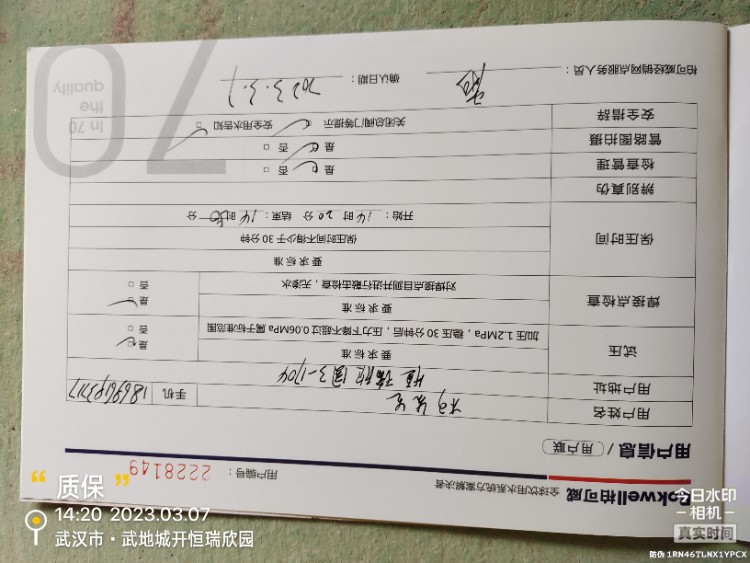 Rokwell柏可威 全球饮用水系统方案解决者
用户信息 / 用户联 用户编号：2228149
用户姓名
手机
用户地址 恒瑞欣园3-1704
试压
要求标准
加压1.2MPa，稳压30分钟后，压力下降不超过0.06MPa属于标准范围
是 否
焊接点检查
要求标准
对焊接点目测并进行敲击检查，无渗水
是 否
保压时间
要求标准
保压时间不得少于30分钟
开始：14时20分 结束：14时50分
辨别真伪
检查管理 是 否
管路图拍摄 是 否
安全措辞 关闭总阀门等提示 安全用水告知
柏可威经销网点服务人员： 确认日期：2023.3.7
In 70
the
quality
70
质保
14:20 2023.03.07
武汉市·武地城开恒瑞欣园
今日水印
相机
真实时间
防伪 1RN46TLNX1YPCX